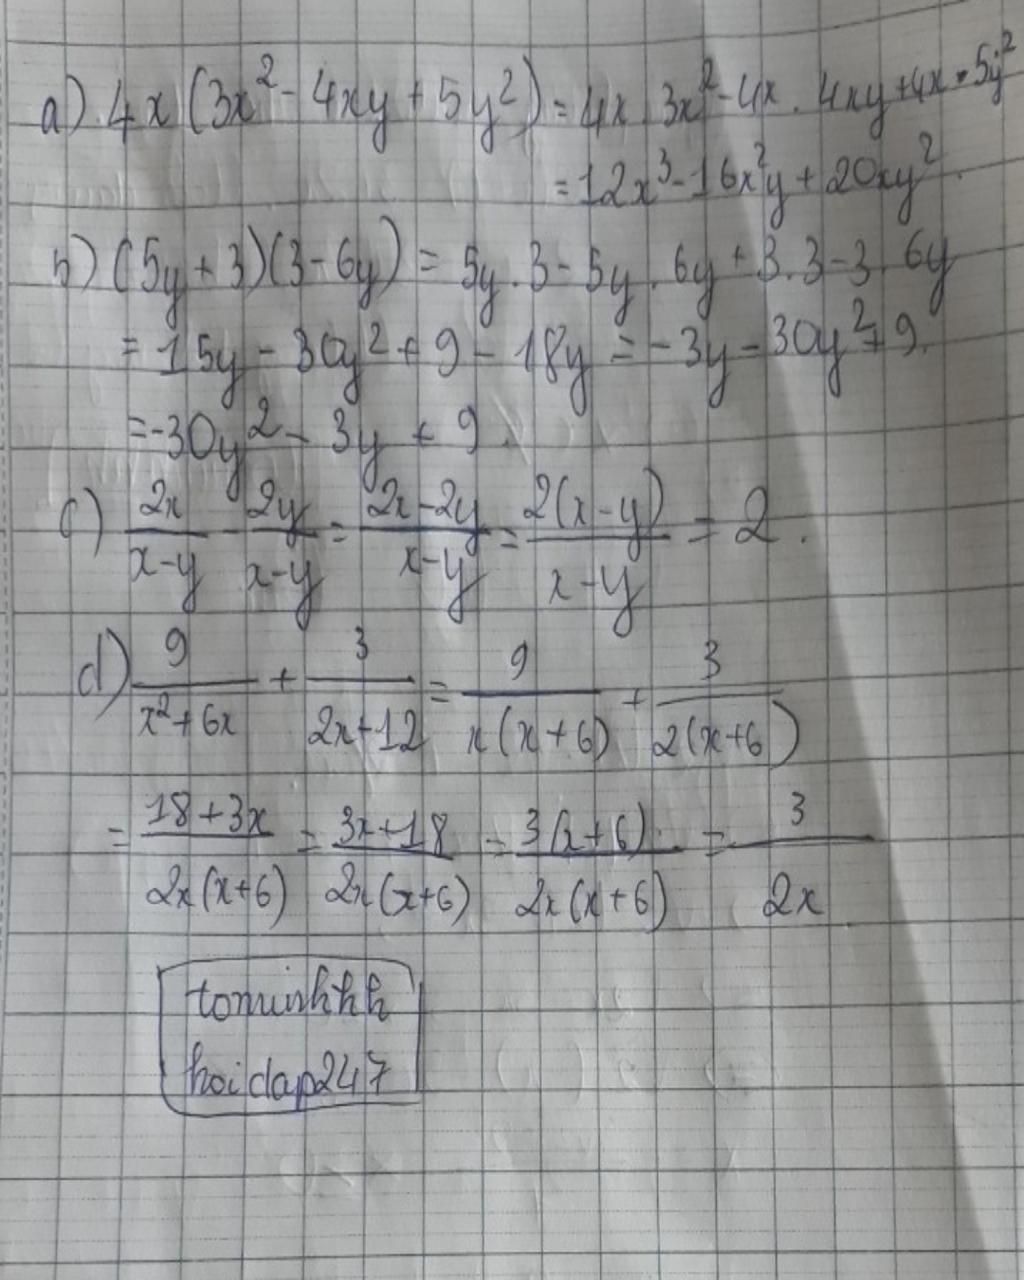 a) 4x(3x² - 4xy + 5y²) = 4x . 3x² - 4x . 4xy + 4x . 5y²
= 12x³ - 16x²y + 20xy².
b) (5y + 3)(3 - 6y) = 5y . 3 - 5y . 6y + 3 . 3 - 3 . 6y
= 15y - 30y² + 9 - 18y = -3y - 30y² + 9.
= -30y² - 3y + 9.
c) 2x/(x-y) - 2y/(x-y) = (2x-2y)/(x-y) = 2(x-y)/(x-y) = 2.
d) 9/(x²+6x) + 3/(2x+12) = 9/(x(x+6)) + 3/(2(x+6))
= (18+3x)/(2x(x+6)) = (3x+18)/(2x(x+6)) = 3(x+6)/(2x(x+6)) = 3/(2x)
hoidap247